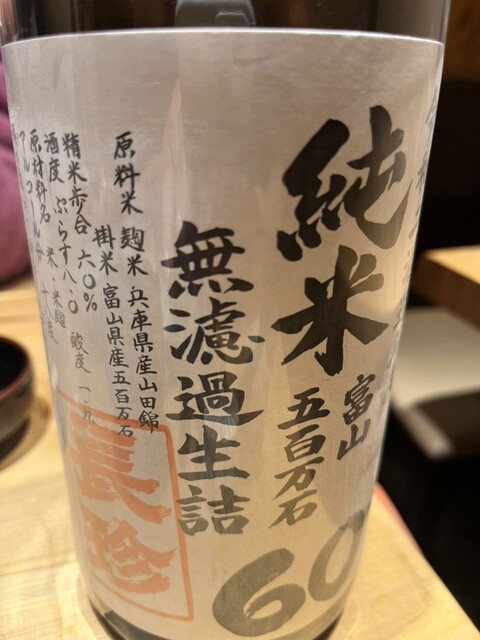 純米
富山
五百万石
60
無濾過生詰
原料米 麹米 兵庫県産山田錦
掛米 富山県産五百万石
精米歩合 六〇%
酒度 ぷらす八.〇 酸度 一.
原材料名 米 米麹
アルコール分 十八度
長珍